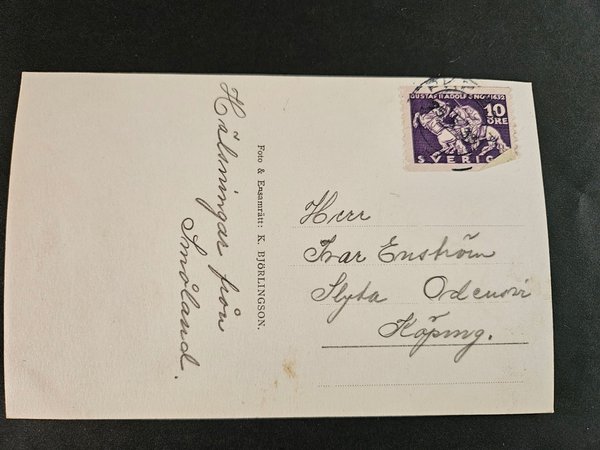 Hälsningar från
Småland.
Foto & Ensamrätt: K. BJÖRLINGSON.
GUSTAF II ADOLF 6 NOV. 1632
10
ÖRE
SVERIGE
Herr
Ivar Enström
Slyta Odensvi
Köping.